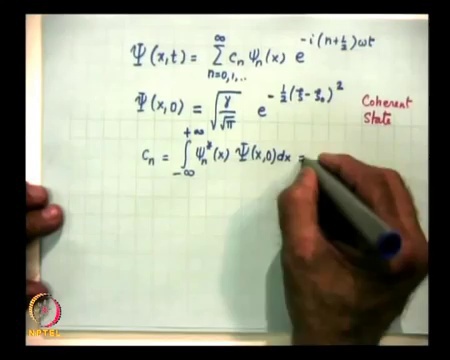 Ψ(x,t) = ∑_{n=0,1,..}^{∞} c_n ψ_n(x) e^{-i(n+½)ωt}
Ψ(x,0) = √(γ/√π) e^{-½(ξ-ξ₀)²} Coherent State
c_n = ∫_{-∞}^{+∞} ψ_n*(x) Ψ(x,0)dx =
NPTEL